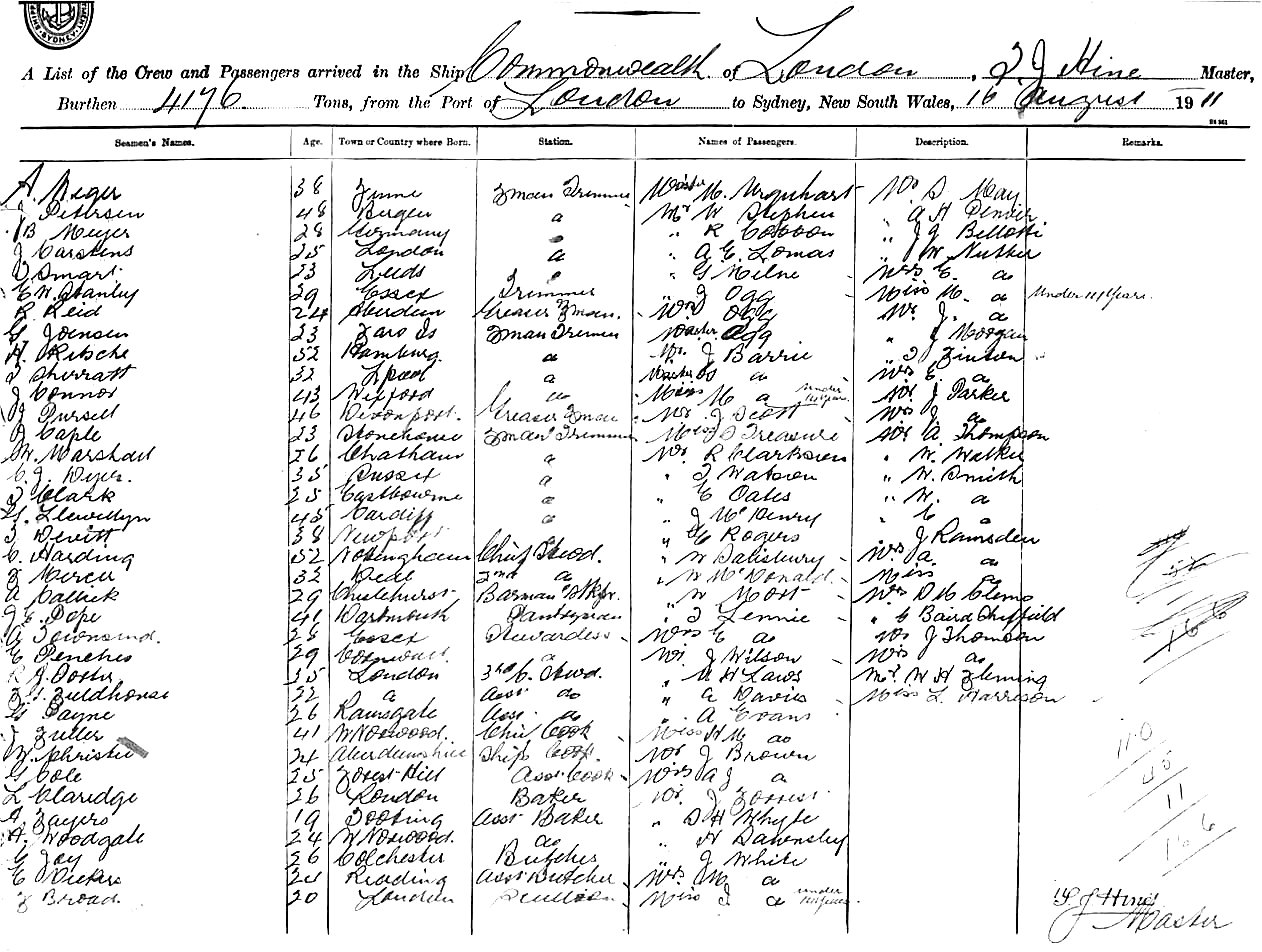 SYDNEY
A List of the Crew and Passengers arrived in the Ship Commonwealth of London, T J Hine Master,
Burthen 4176 Tons, from the Port of London to Sydney, New South Wales, 16 August 1911
Seamen's Names. Age. Town or Country where Born. Station. Names of Passengers. Description. Remarks.
A. Neger 38 Fiume Fman Trimmer Master M. Urquhart Mr D May
Petersen 48 Bergen a Mr W Stephen " A H Denner
B Meyer 28 Germany " R Cobbon " J J Bellotti
J Carstens 25 London a " A E. Lomas " W. Nutter
T Smart 23 Leeds a " G Milne Mrs E. a
E W. Stanley 29 Essex Trimmer " J Ogg Miss M. a Under 14 Years.
R Reid 24 Aberdeen Greaser Fman. Mrs Ogg Mr. J. a
G Joensen 23 Faro Is Fman Trimmer Master Ogg " J Morgan
H. Ritsche 32 Hamburg a Mr. J Barrie " T Finson
T Sherratt 32 L'pool a Master a Mrs E. a
J Connor 43 Wexford a Miss M a under Mr J Parker
J Pursell 46 Devonport. Greaser Fman Mr. J Scott Mrs J a
Caple 23 Stonehouse Fman Trimmer Miss J S Treasure Mr A. Thompson
W. Marshall 26 Chatham a Mr R Clarkson " W. Walker
C. J. Dyer. 35 Sussex a " T Watson " W. Smith
T Clark 25 Eastbourne a " E Oates " W. a
G. Llewellyn 45 Cardiff a " J McHenry " C a
T Devitt 38 Newport a " G Rogers " J Ramsden
C. Harding 52 Nottingham Chief Stwd. " W Salisbury Mrs A. a
F Mercer 32 Deal 2nd a " W McDonald Miss a
A Callick 29 Chislehurst Barman " W Mort Mrs D M Clems
J. E. Pope 41 Dartmouth Pantryman " T Lennie " C Baird Sheffield
A Townsend. 28 Essex Stewardess Mrs E a Mr J Thomson
E Penches 29 Cornwall. a Mr. J Wilson Mrs a
R J. Foster 35 London 3rd C. Stwd. " A H Laws Mr. W H Fleming
F. H. Fieldhouse 22 a Asst do " A Davies Miss L. Harrison
G Payne 26 Ramsgate Asst. a " A Evans
J Fuller 41 W Norwood. Chief Cook Miss H M a
W. Christie 24 Aberdeenshire Ships Cook. Mr J Brown
G Cole 25 Forest Hill Asst Cook Mrs A J a
L Claridge 26 London Baker Mr. J Forrest
A. Fayers 19 Tooting Asst Baker " D H Whyte
A. Woodgate 24 W Norwood. do " H Davensley
G Joy 26 Colchester Butcher " J White
E Vickers 24 Reading Asst Butcher Mrs M a
F Broad 20 London Scullion Miss J a under
110
45
11
16 6
T. J Hine
Master